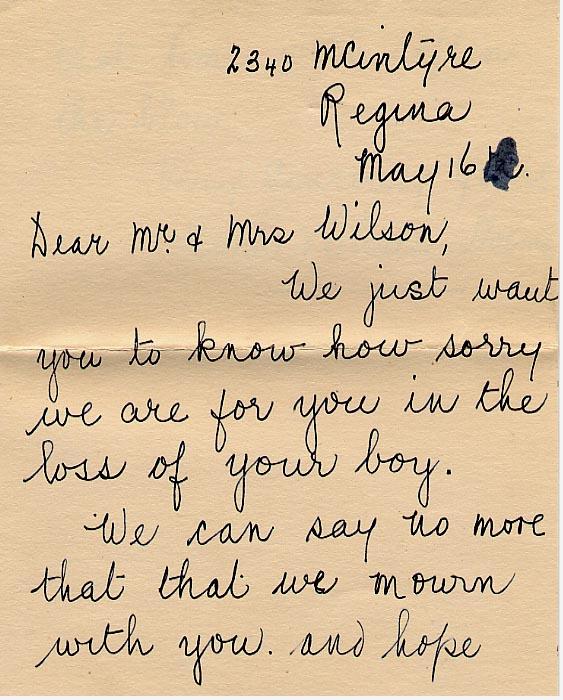 2340 McIntyre
Regina
May 16
Dear Mr. & Mrs Wilson,
We just want
you to know how sorry
we are for you in the
loss of your boy.
We can say no more
that that we mourn
with you. and hope